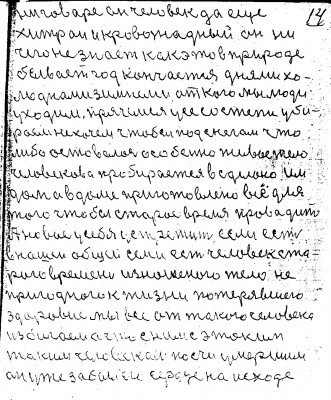 14
приговаре он человек да еще
хитрой и кровожадный он ни
чего не знает как это в природе
бывает год кончается днями хо-
лодными зимними от кого мы люди
уходим. прячемся усе со степи уби-
раем не хочем чтобы под снегом что
либо оставалось особенно живое тело
человекова пробирается в
дом а в доме приготовлено всё для
того чтобы старое время проводить
А новое у себя устретить если есть
в нашей общей семи есть человек ста-
рого времени изношеного тело не
пригодного к жизни потерявшего
здоровие мы все от такого человека
избигаем а что с ним с этоким
таким человеком почти умершим
он уже забытый сердце на исходе